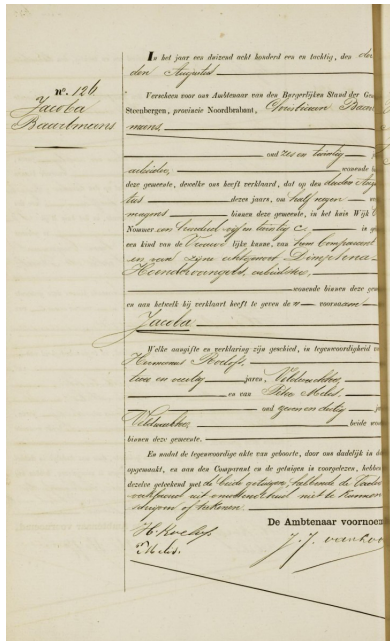 In het jaar een duizend acht honderd een en tachtig, den der
den Augustus
No. 126
Jacoba
Baartmeens
Verscheen voor ons Ambtenaar van den Burgerlijken Stand der Gem
Steenbergen, provincie Noordbrabant, Christiaan Baar
meens,
oud zes en twintig
arbeider, wonende b
deze gemeente, dewelke ons heeft verklaard, dat op den derden Augus
tus dezes jaars, om half negen
morgens binnen deze gemeente, in het huis Wijk
Nommer een honderd vijf en twintig C, is g
een kind van de Vrouwelijke kunne, van hem Comparant
en van zijne echtgenoot Dingetena
arbeidster,
wonende binnen deze gem
en aan hetwelk hij verklaart heeft te geven de voornaam
Jacoba
Welke aangifte en verklaring zijn geschied, in tegenwoordigheid v
Hermanus Roelofs,
twee en veertig jaren, Veldwachter,
en van Peter Melis,
oud zeven en dertig
Veldwachter, beide won
binnen deze gemeente.
En nadat de tegenwoordige akte van geboorte, door ons dadelijk in d
opgemaakt, en aan den Comparant en de getuigen is voorgelezen, hebben
dezelve geteekend met de beide getuigen, hebbende de Vader
verklaard uit onkunde niet te kunnen
schrijven of teekenen
De Ambtenaar voornoe
H. Roelofs
P. Melis.
J. J. van Loo